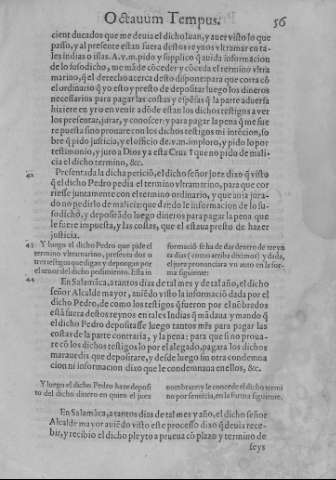 Octauum Tempus. 56
cient ducados que me deuia el dicho Iuan, y auer visto lo que
passo, y al presente estan fuera destos reynos vltramar en ta-
les indias o islas. A v.m. pido y supplico q̃ auida informacion
de lo susodicho, me mãde cõceder y cõceda el termino vltra
marino, q̃ el derecho acerca desto dispone: para que corra cõ
el ordinario q̃ yo estoy presto de depositar luego los dineros
necessarios para pagar las costas y espẽsas q̃ la parte aduersa
hiziere en yr o en venir a dõde estan los dichos testigos a ver
los presentar, jurar, y conoscer: y para pagar la pena q̃ me fue
re puesta sino prouare con los dichos testigos mi intẽcion, so
bre q̃ pido justicia, y el officio de .v.m. imploro, y pido lo por
testimonio, y juro a Dios y a esta Cruz † que no pido de mali-
cia el dicho termino, &c.
42 Presentada la dicha peticiõ, el dicho señor jote dixo q̃ visto
q̃ el dicho Pedro pedia el termino vltramarino, para que cor
riesse juntamente con el termino ordinario, y que auia jura-
do no pedirlo de malicia: que dando le informacion de lo su-
sodicho, y depositãdo luego dineros para pagar la pena que
le fuere impuesta, y las costas, que el estaua presto de hazer
justicia.
43 Y luego el dicho Pedro que pide el
termino vltramarino, presenta dos o
tres testigos que sigan y depongan por
el tenor del dicho pedimiento. Esta in
formació se ha de dar dentro de treyn
ta dias (como arriba diximos) y dada,
el juez pronunciara vn auto en la for-
ma siguiente:
44 En Salamãca, a tantos dias de tal mes y de tal año, el dicho
señor Alcalde mayor, auiẽdo visto la informaciõ dada por el
dicho Pedro, de como los testigos q̃ fueron por el nõbrados
estã fuera destos reynos en tales Indias q̃ mãdaua y mando q̃
el dicho Pedro depositasse luego tantos mrs para pagar las
costas de la parte contraria, y la pena: para que si no proua-
re cõ los dichos testigos lo por el alegado, pagara los dichos
marauedis que depositare, y desde luego sin otra condemna
cion ni informacion dixo que le condemnaua en ellos, &c.
Y luego el dicho Pedro haze deposi
to del dicho dinero en quien el juez
nombrare y le concede el dicho termi
no por sentencia, en la forma siguiente.
En Salamãca, a tantos dias de tal mes y año, el dicho señor
Alcalde mayor auiẽdo visto este processo dixo q̃ deuia rece-
bir, y recibio el dicho pleyto a prueua cõ plazo y termino de
seys